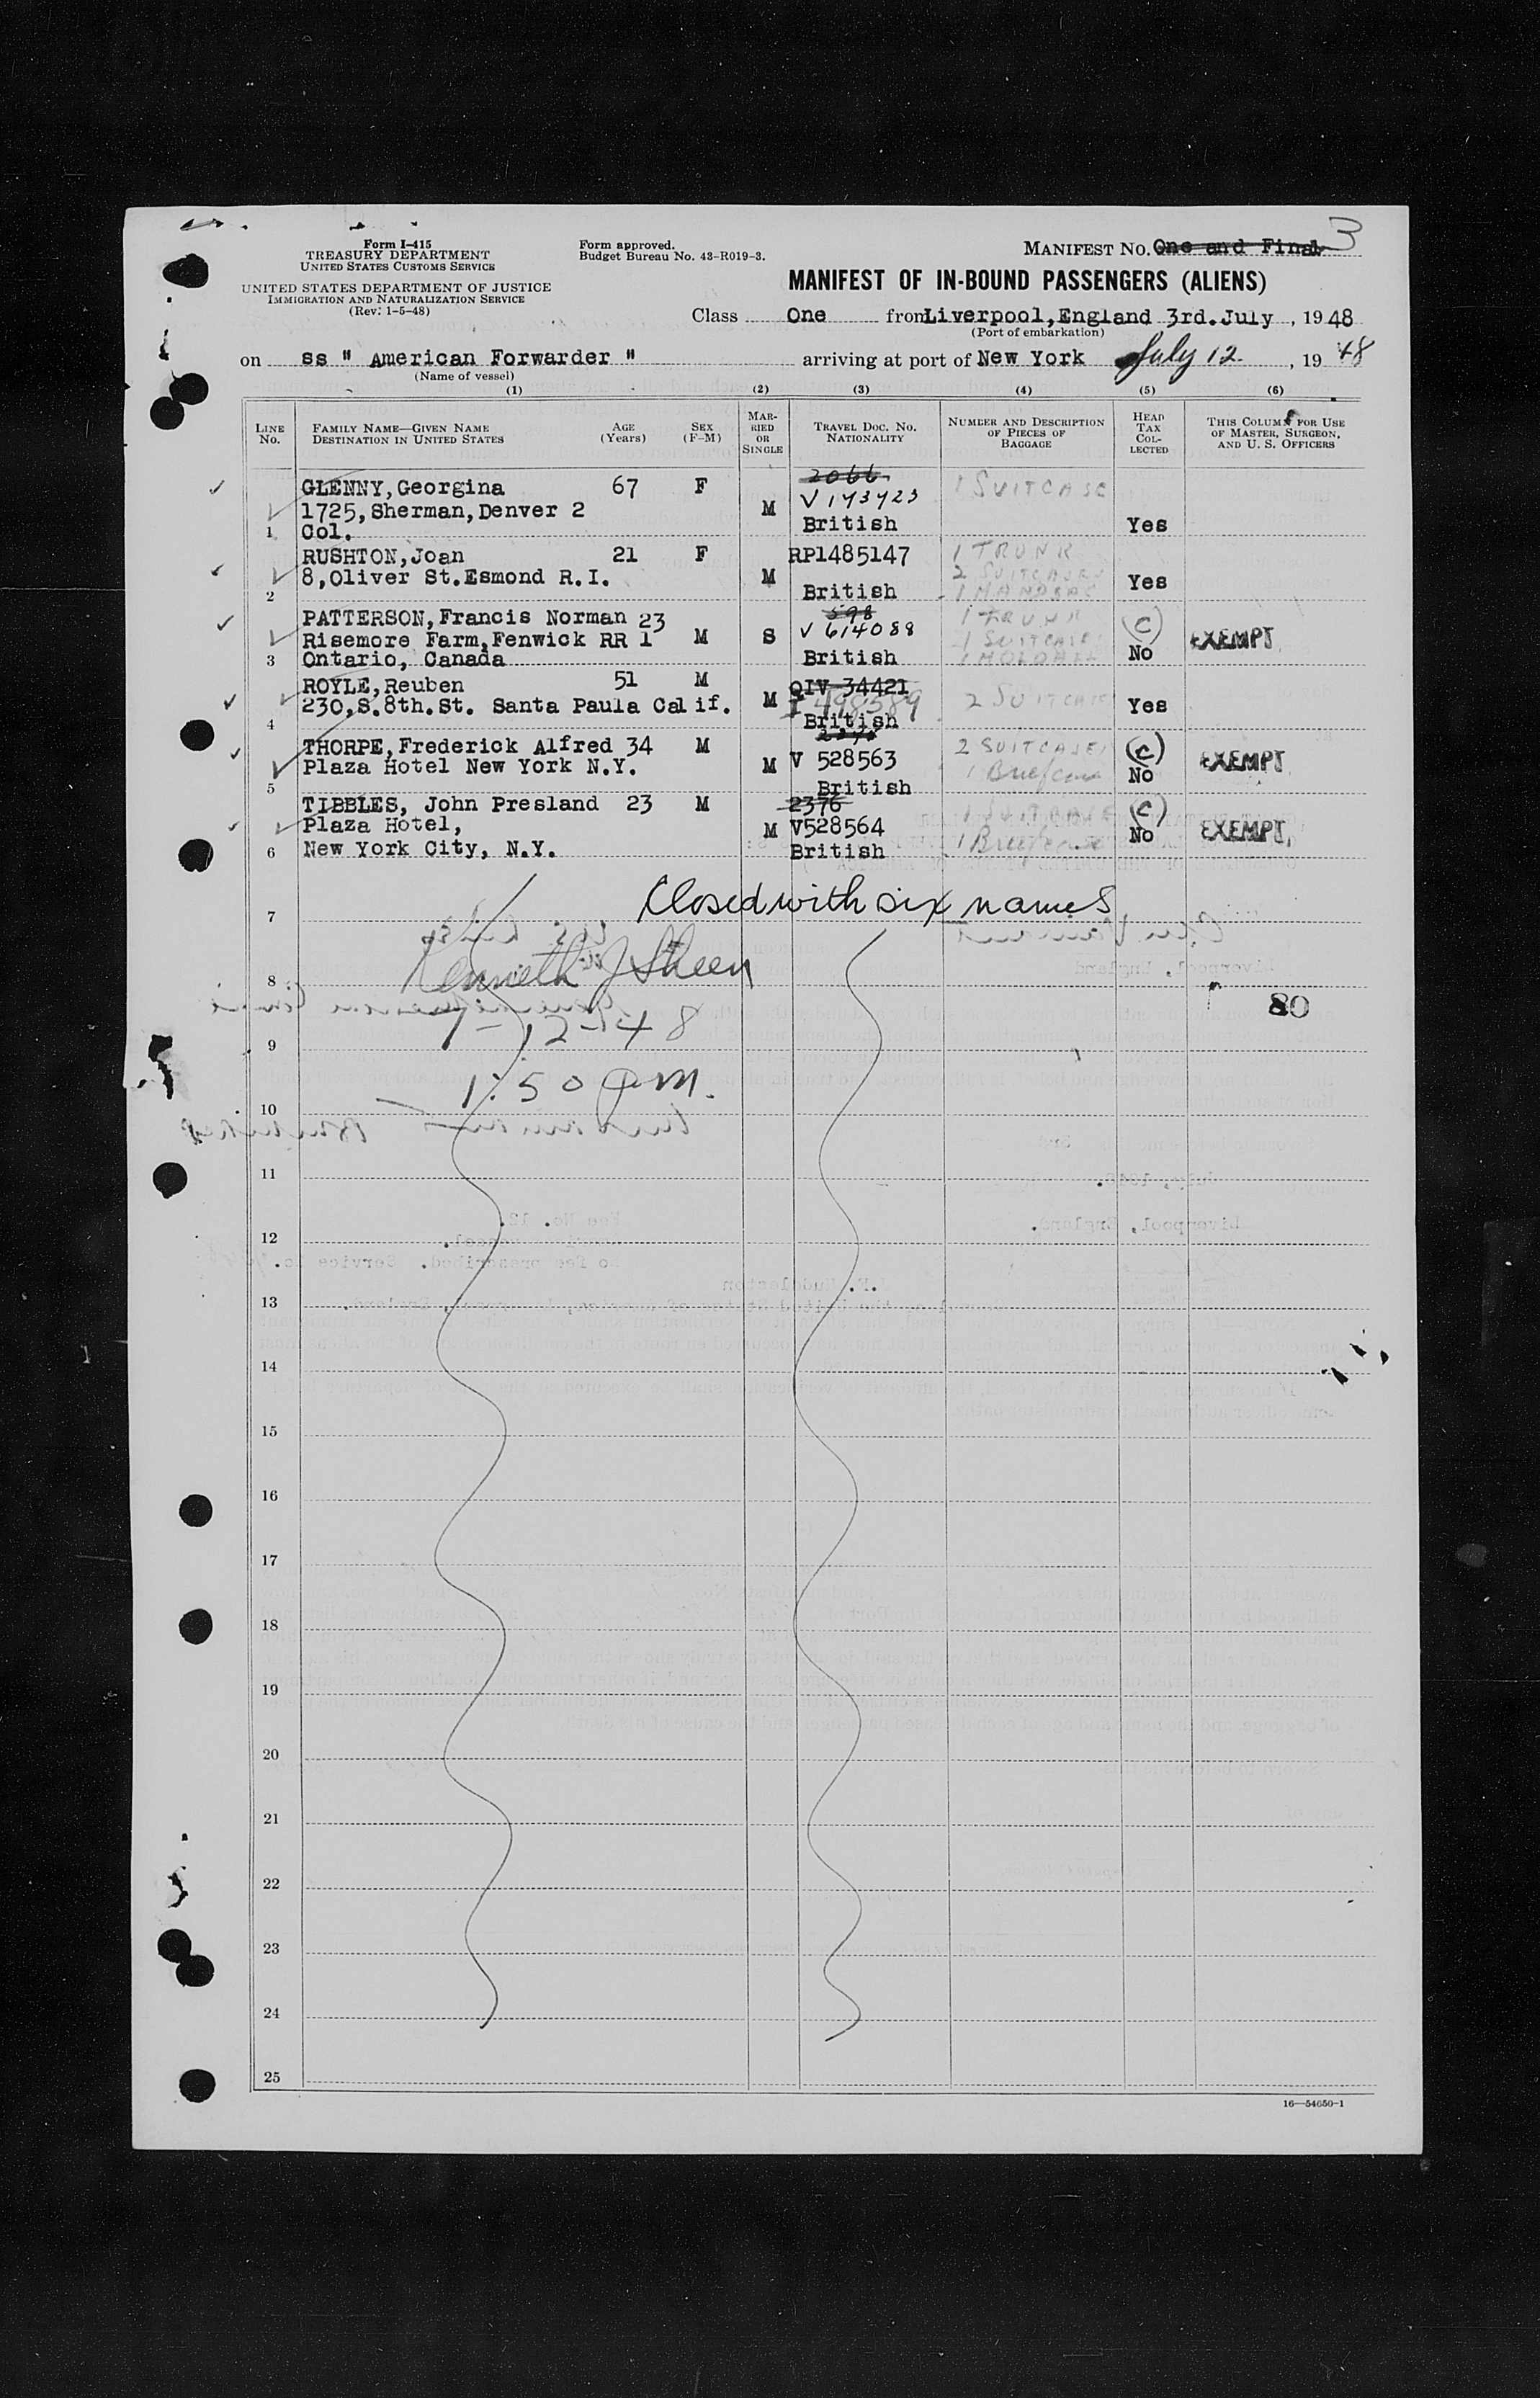 Form I-415
TREASURY DEPARTMENT
UNITED STATES CUSTOMS SERVICE
UNITED STATES DEPARTMENT OF JUSTICE
IMMIGRATION AND NATURALIZATION SERVICE
(Rev. 1-5-48)
Form approved.
Budget Bureau No. 43-R019-3.
MANIFEST NO. One and Final 3
MANIFEST OF IN-BOUND PASSENGERS (ALIENS)
Class One from Liverpool, England 3rd. July, 1948
(Port of embarkation)
on ss " American Forwarder " arriving at port of New York July 12, 1948
(Name of vessel)
(1) (2) (3) (4) (5) (6)
LINE No.
FAMILY NAME—GIVEN NAME
DESTINATION IN UNITED STATES
AGE (Years)
SEX (F-M)
MARRIED OR SINGLE
TRAVEL DOC. NO. NATIONALITY
NUMBER AND DESCRIPTION OF PIECES OF BAGGAGE
HEAD TAX COLLECTED
THIS COLUMN FOR USE OF MASTER, SURGEON, AND U. S. OFFICERS
GLENNY, Georgina 67 F 2066 1 SUITCASE
1725, Sherman, Denver 2 M V 143423
1 Col. British Yes
RUSHTON, Joan 21 F RP1485147 1 TRUNK
8, Oliver St. Esmond R.I. M 2 SUITCASES Yes
2 British 1 HANDBAG
PATTERSON, Francis Norman 23 598 1 TRUNK (C)
Risemore Farm, Fenwick RR 1 M S V 614088 1 SUITCASE EXEMPT
3 Ontario, Canada British 1 HOLDALL No
ROYLE, Reuben 51 M QIV 34421
230, S. 8th. St. Santa Paula Calif. M I 498589 2 SUITCASE Yes
4 British
THORPE, Frederick Alfred 34 M 2 SUITCASES (C)
Plaza Hotel New York N.Y. M V 528563 1 Briefcase No EXEMPT
5 British
TIBBLES, John Presland 23 M 2376 1 SUITCASE (C)
Plaza Hotel, M V528564 No EXEMPT.
6 New York City, N.Y. British 1 Briefcase
7 Closed with six names
8 Kenneth J Sheen
80
7-12-48
9
1:50 PM.
10
11
12
13
14
15
16
17
18
19
20
21
22
23
24
25
16—54650-1